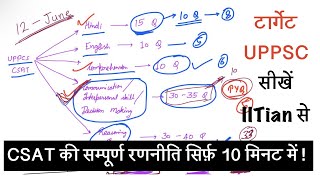 12 - June
टारगेट
UPPSC
सीखें
IITian से
UPPCS
CSAT
Hindi
15 Q
10 Q
8
English - 10 Q
5
Comprehension
10 Q
Communication/
Interpersonal skill/
Decision Making
30 - 35 Q
10
PYQ
Reasoning
30 - 40 Q
CSAT की सम्पूर्ण रणनीति सिर्फ़ 10 मिनट में !